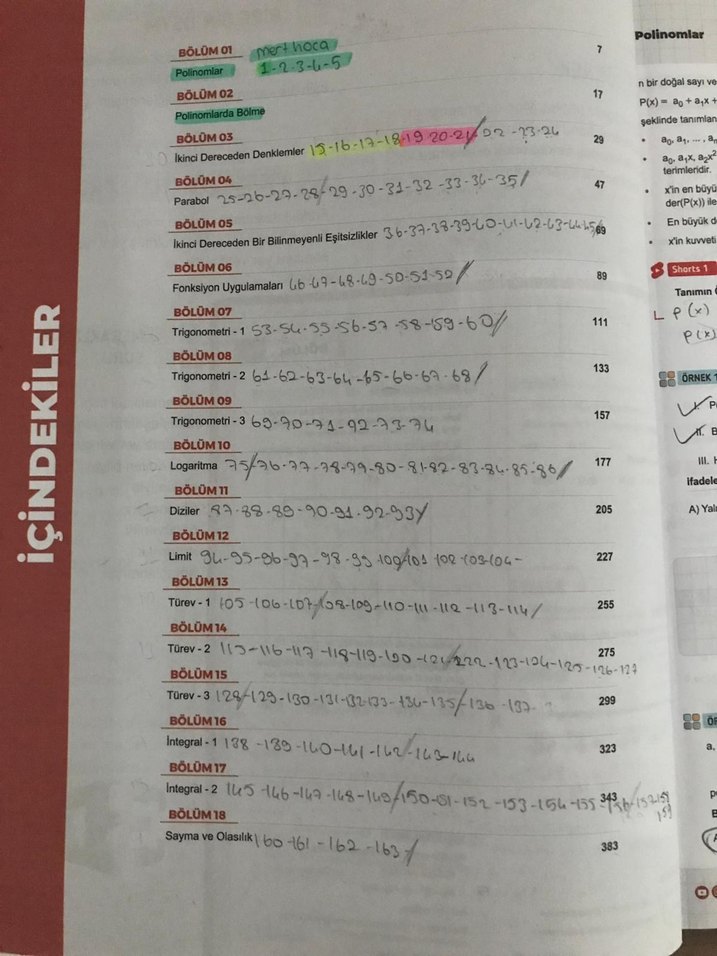 İÇİNDEKİLER
BÖLÜM 01 mert hoca
Polinomlar 1-2-3-4-5 7
BÖLÜM 02
Polinomlarda Bölme 17
BÖLÜM 03
İkinci Dereceden Denklemler 15-16-17-18-19-20-21/22-23-24 29
BÖLÜM 04
Parabol 25-26-27-28/-29-30-31-32-33-34-35/ 47
BÖLÜM 05
İkinci Dereceden Bir Bilinmeyenli Eşitsizlikler 36-37-38-39-40-41-42-43-44-45/ 69
BÖLÜM 06
Fonksiyon Uygulamaları 46-47-48-49-50-51-52/ 89
BÖLÜM 07
Trigonometri - 1 53-54-55-56-57-58-159-60// 111
BÖLÜM 08
Trigonometri - 2 61-62-63-64-65-66-67-68/ 133
BÖLÜM 09
Trigonometri - 3 69-70-71-92-73-74 157
BÖLÜM 10
Logaritma 75/76-77-78-79-80-81-82-83-84-85-86/ 177
BÖLÜM 11
Diziler 87-88-89-90-91-92-93/ 205
BÖLÜM 12
Limit 94-95-96-97-98-99-100/101-102-103-104- 227
BÖLÜM 13
Türev - 1 105-106-107/108-109-110-111-112-113-114/ 255
BÖLÜM 14
Türev - 2 115-116-117-118-119-120-121/222-123-124-125-126-127 275
BÖLÜM 15
Türev - 3 128/-129-130-131-132-133-134-135/-136-137 299
BÖLÜM 16
İntegral - 1 138-139-140-141-142/-143-144 323
BÖLÜM 17
İntegral - 2 145-146-147-148-149/150-151-152-153-154-155-156-157-158 343
159
BÖLÜM 18
Sayma ve Olasılık 160-161-162-163-/ 383
Polinomlar
n bir doğal sayı ve
P(x) = a₀ + a₁x +
şeklinde tanımlan
• a₀, a₁, ... , a
• a₀, a₁x, a₂x²
terimleridir.
• x'in en büyü
der(P(x)) ile
• En büyük d
• x'in kuvveti
Shorts 1
Tanımın
P(x)
P(x)
ÖRNEK 1
I. P
II. B
III. H
İfadele
A) Yal
ÖR
a,
B